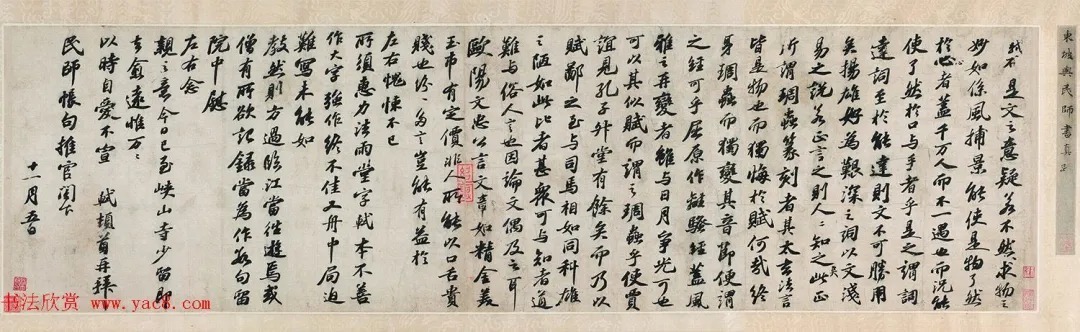 東坡與民師書真迹
軾啟是文之意疑若不然求物之
妙如係風捕景能使是物了然
於心者蓋千萬人而不一遇也而況能
使了然於口與手者乎是之謂詞
達詞至於能達則文不可勝用
矣揚雄好為艱深之詞以文淺
易之說若正言之則人〻知之矣此正
所謂琱蟲篆刻者其太玄法言
皆是物也而獨悔於賦何哉終
身琱蟲而獨變其音節便謂
之經可乎屈原作離騷經蓋風
雅之再變者雖與日月爭光可也
可以其似賦而謂之琱蟲乎使賈
誼見孔子升堂有餘矣而乃以
賦鄙之至與司馬相如同科雄
之陋如此比者甚眾可與知者道
難與俗人言也因論文偶及之耳
歐陽文忠公言文章如精金美
玉市有定價非人所能以口舌貴
賤也紛〻多言豈能有益於
左右愧悚不已
所須惠力法雨堂字軾本不善
作大字強作終不佳又舟中局迫
難寫未能如
教然則方過臨江當往遊焉或
僧有所欲記錄當為作數句留
院中慰
左右念
親之意今日已至峽山寺少留即
去愈遠惟萬〻
以時自愛不宣 軾頓首再拜
民師帳句推官閣下
十一月五日
书法欣赏
www.yac8.com